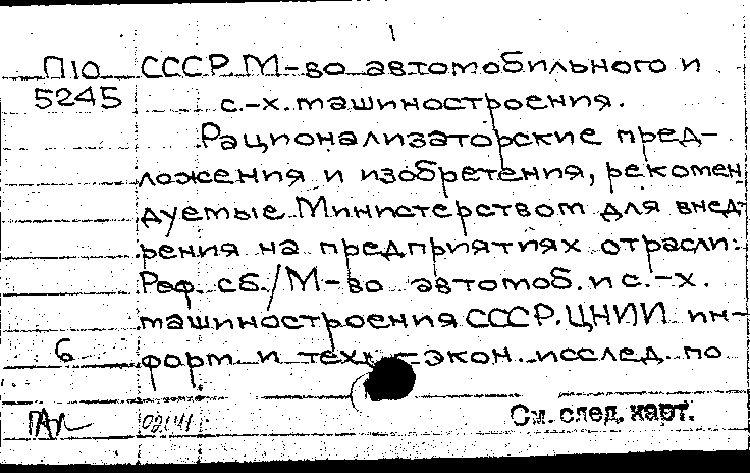 1
П10 СССР. М-во автомобильного и
5245 с.-х. машиностроения.
Рационализаторские пред-
ложения и изобретения, рекомен
дуемые Министерством для внед-
рения на предприятиях отрасли:
Реф. сб./М-во автомоб. и с.-х.
машиностроения СССР. ЦНИИ ин-
6 форм и техн-экон. исслед. по
См. след. карт.